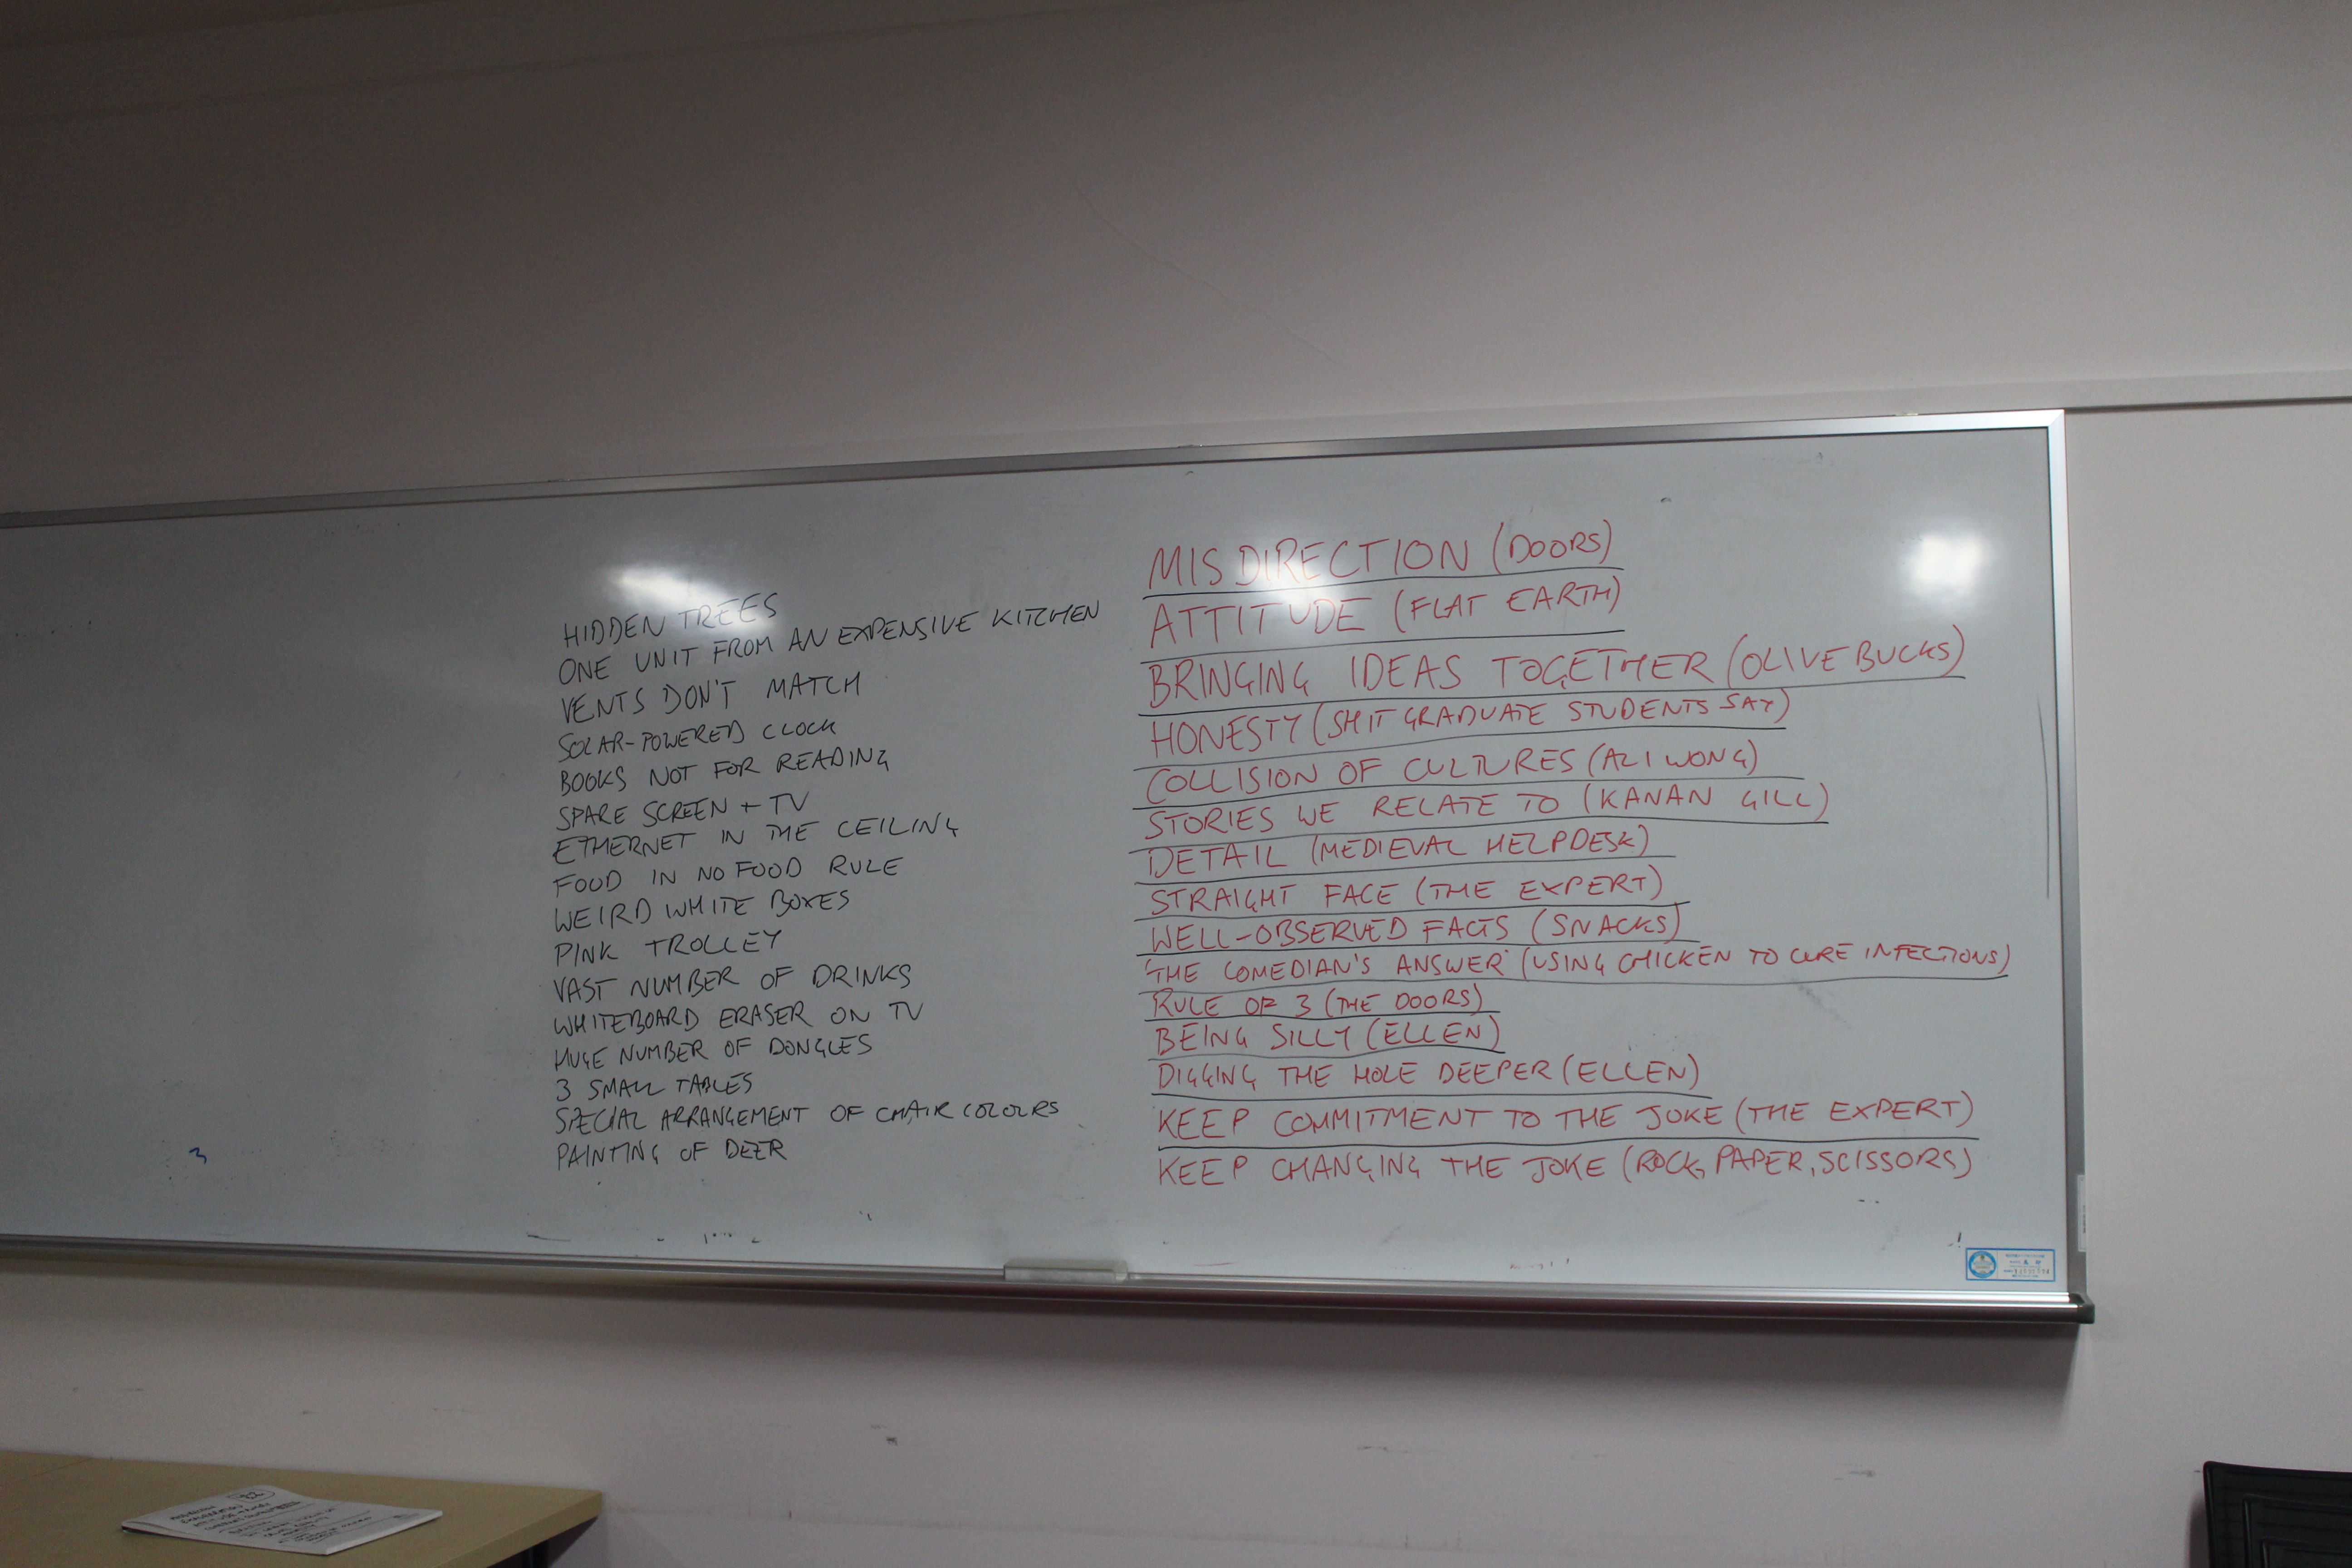 HIDDEN TREES
ONE UNIT FROM AN EXPENSIVE KITCHEN
VENTS DON'T MATCH
SOLAR-POWERED CLOCK
BOOKS NOT FOR READING
SPARE SCREEN + TV
ETHERNET IN THE CEILING
FOOD IN NO FOOD RULE
WEIRD WHITE BOXES
PINK TROLLEY
VAST NUMBER OF DRINKS
WHITEBOARD ERASER ON TV
HUGE NUMBER OF DONGLES
3 SMALL TABLES
SPECIAL ARRANGEMENT OF CHAIR COLOURS
PAINTING OF DEER
MISDIRECTION (DOORS)
ATTITUDE (FLAT EARTH)
BRINGING IDEAS TOGETHER (OLIVE BUCKS)
HONESTY (SHIT GRADUATE STUDENTS SAY)
COLLISION OF CULTURES (ALI WONG)
STORIES WE RELATE TO (KANAN GILL)
DETAIL (MEDIEVAL HELPDESK)
STRAIGHT FACE (THE EXPERT)
WELL-OBSERVED FACTS (SNACKS)
'THE COMEDIAN'S ANSWER' (USING CHICKEN TO CURE INFECTIONS)
RULE OF 3 (THE DOORS)
BEING SILLY (ELLEN)
DIGGING THE HOLE DEEPER (ELLEN)
KEEP COMMITMENT TO THE JOKE (THE EXPERT)
KEEP CHANGING THE JOKE (ROCK, PAPER, SCISSORS)